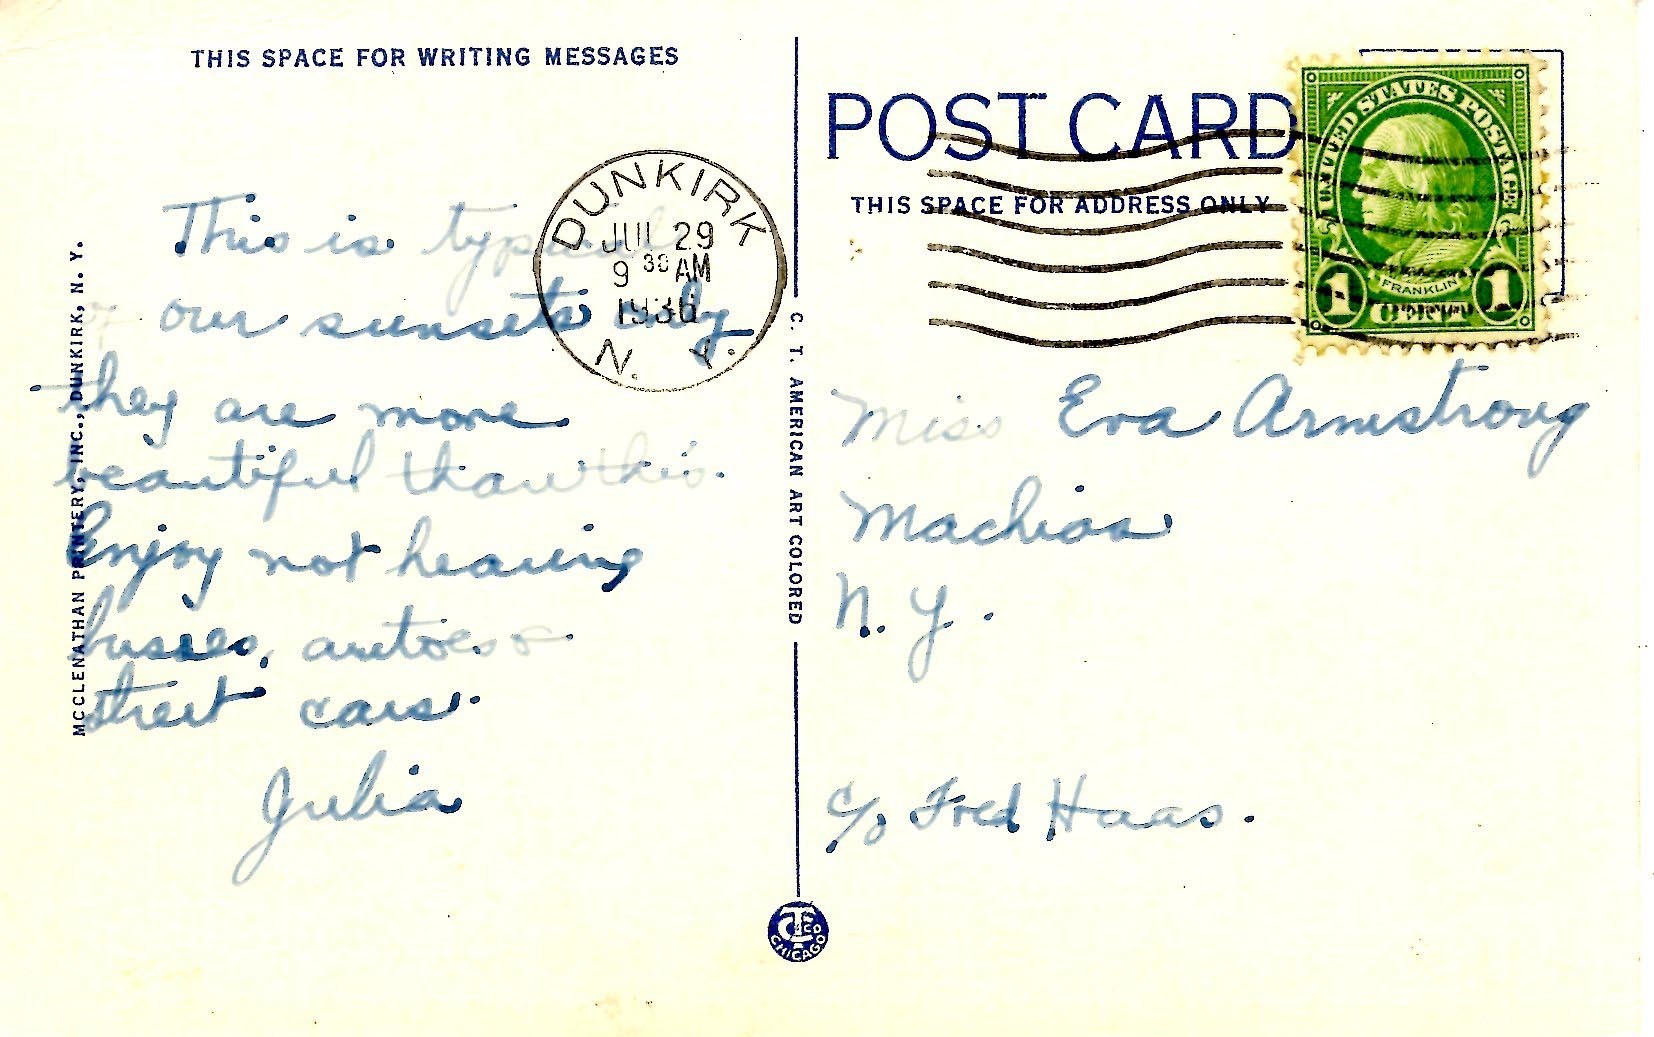 THIS SPACE FOR WRITING MESSAGES
This is typical
of our sunsets only
they are more
beautiful than this.
Enjoy not hearing
busses, autoes &
street cars.
Julia
MCCLENATHAN PRINTERY, INC., DUNKIRK, N. Y.
DUNKIRK
JUL 29
9 30 AM
1936
N. Y.
C. T. AMERICAN ART COLORED
CTCO
CHICAGO
POST CARD
THIS SPACE FOR ADDRESS ONLY
UNITED STATES POSTAGE
FRANKLIN
1 CENT 1
Miss Eva Armstrong
Machias
N. Y.
c/o Fred Haas.